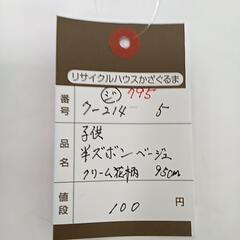 リサイクルハウスかざぐるま
番号 795
ター214 5
品名 子供
半ズボン ベージュ
クリーム花柄 95cm
値段 100 円